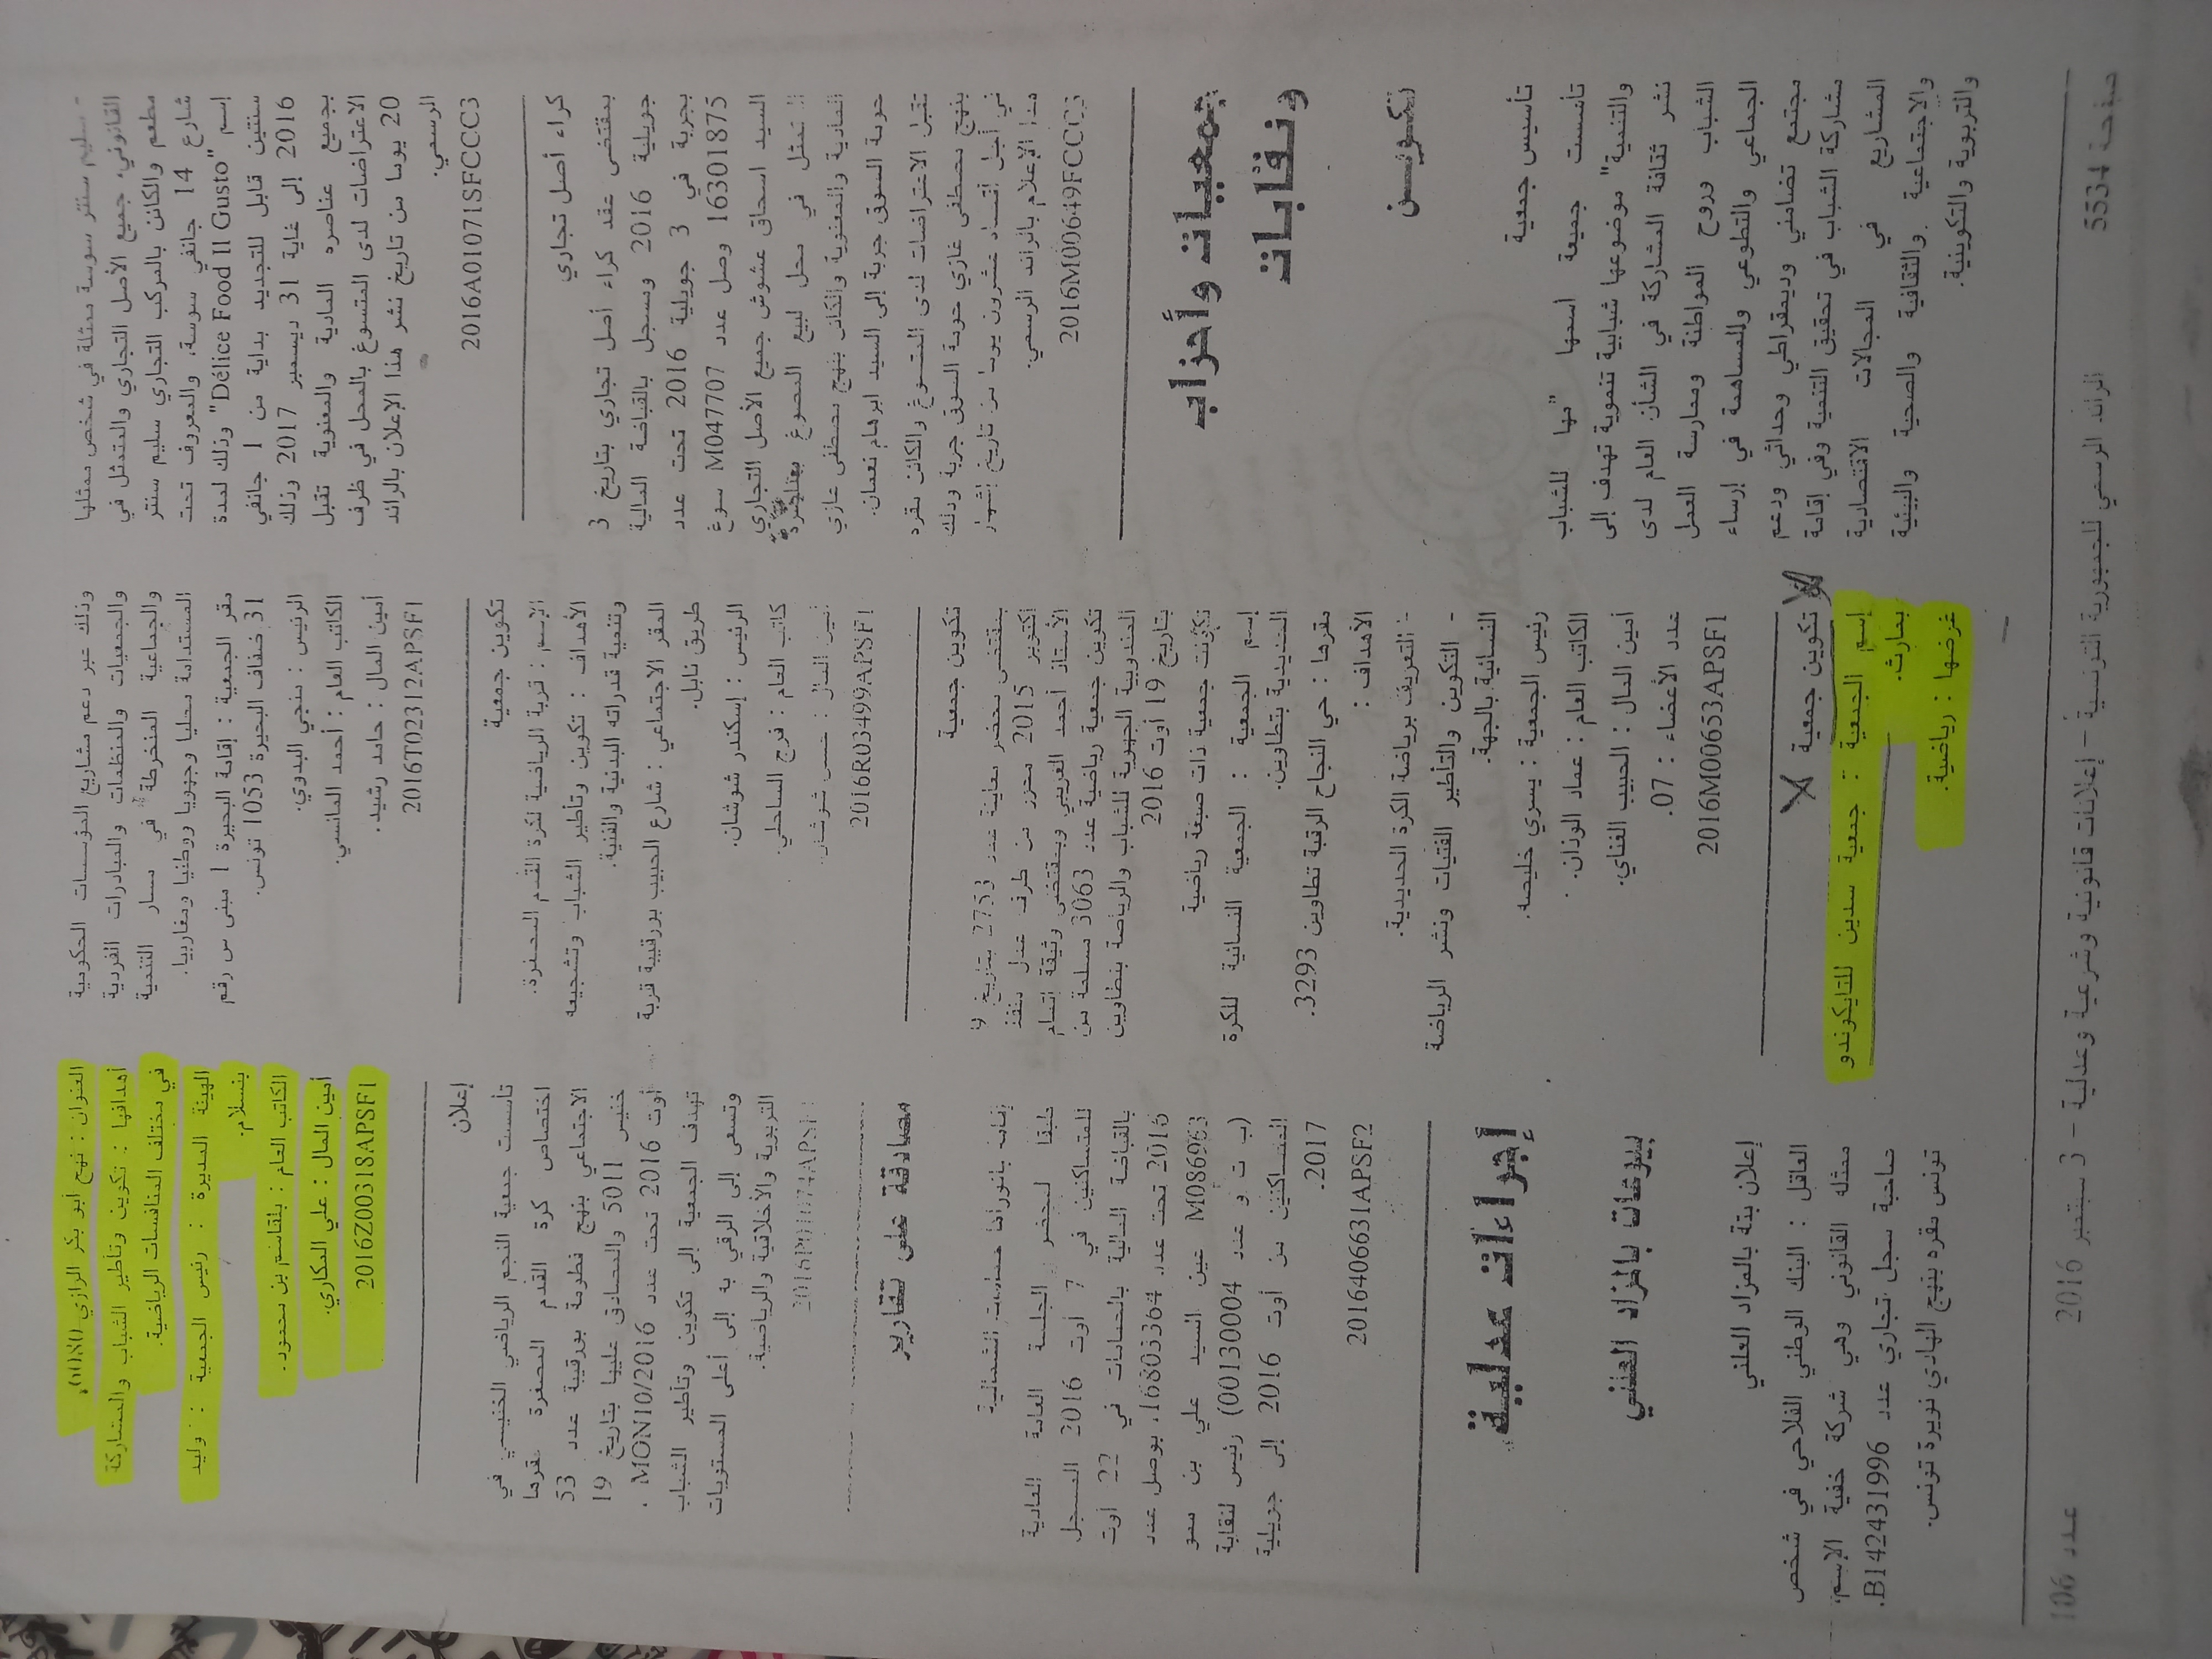 سليم سنتر سوسة ممثلة في شخص ممثلها
القانوني، جميع الأصل التجاري والمتمثل في
مطعم والكائن بالمركب التجاري سليم سنتر
شارع 14 جانفي سوسة، والمعروف تحت
إسم "Délice Food Il Gusto" وذلك لمدة
سنتين قابل للتجديد بداية من 1 جانفي
2016 إلى غاية 31 ديسمبر 2017 وذلك
بجميع عناصره المادية والمعنوية تقبل
الاعتراضات لدى المتسوغ بالمحل في ظرف
20 يوما من تاريخ نشر هذا الإعلان بالرائد
الرسمي.
2016A01071SFCCC3
كراء أصل تجاري
بمقتضى عقد كراء أصل تجاري بتاريخ 3
جويلية 2016 ومسجل بالقباضة المالية
بجربة في 3 جويلية 2016 تحت عدد
16301875 وصل عدد M047707 سوغ
السيد اسحاق عشوش جميع الأصل التجاري
المتمثل في محل لبيع المصوغ بعناصره
المادية والمعنوية والكائن بنهج مصطفى غازي
حومة السوق جربة إلى السيد ابرهام نعمان.
تقبل الاعتراضات لدى المتسوغ والكائن مقره
بنهج مصطفى غازي حومة السوق جربة وذلك
في أجل أقصاه عشرون يوما من تاريخ إشهار
هذا الإعلام بالرائد الرسمي.
2016M00649FCCC3
جمعيات وأحزاب
ونقابات
تكويــن
تأسيس جمعية
تأسست جميعة اسمها "مها للشباب
والتنمية" موضوعها شبابية تنموية تهدف إلى
نشر ثقافة المشاركة في الشأن العام لدى
الشباب وروح المواطنة وممارسة العمل
الجماعي والتطوعي والمساهمة في إرساء
مجتمع تضامني وديمقراطي وحداثي ودعم
مشاركة الشباب في تحقيق التنمية وفي إقامة
المشاريع في المجالات الاقتصادية
والاجتماعية والثقافية والصحية والبيئية
والتربوية والتكوينية.
وذلك عبر دعم مشاريع المؤسسات الحكومية
والجمعيات والمنظمات والمبادرات الفردية
والجماعية المنخرطة في مسار التنمية
المستدامة محليا وجهويا ووطنيا ومغاربيا.
مقر الجمعية : إقامة البحيرة 1 مبنى س رقم
31 ضفاف البحيرة 1053 تونس.
الرئيس : منجي البدوي.
الكاتب العام : أحمد المانسي.
أمين المال : حامد رشيد.
2016T02312APSF1
تكوين جمعية
الإسم : قربة الرياضية لكرة القدم المصغرة.
الأهداف : تكوين وتأطير الشباب وتشجيعه
وتنمية قدراته البدنية والفنية.
المقر الاجتماعي : شارع الحبيب بورقيبة قربة
طريق نابل.
الرئيس : إسكندر شوشان.
كاتب العام : فرج الساحلي.
أمين المال : حسن شوشان.
2016R03499APSF1
تكوين جمعية
بمقتضى محضر معاينة عدد 2753 بتاريخ 9
أكتوبر 2015 محرر من طرف عدل منفذ
الأستاذ أحمد الغريبي وبمقتضى وثيقة إتمام
تكوين جمعية رياضية عدد 3063 مسلمة من
المندوبية الجهوية للشباب والرياضة بتطاوين
بتاريخ 19 أوت 2016
تكونت جمعية ذات صبغة رياضية
إسم الجمعية : الجمعية النسائية للكرة
الحديدية بتطاوين.
مقرها : حي النجاح الرقبة تطاوين 3293.
الأهداف :
- التعريف برياضة الكرة الحديدية.
- التكوين والتأطير الفتيات ونشر الرياضة
النسائية بالجهة.
رئيس الجمعية : يسري خليصه.
الكاتب العام : عماد الوذان.
أمين المال : الحبيب الغناي.
عدد الأعضاء : 07.
2016M00653APSF1
تكوين جمعية
إسم الجمعية : جمعية سدين للتايكوندو
بمارث.
غرضها : رياضية.
العنوان : نهج أبو بكر الرازي
أهدافها : تكوين وتأطير الشباب والمشاركة
في مختلف المنافسات الرياضية.
الهيئة المديرة : رئيس الجمعية : وليد
بنسلام.
الكاتب العام : بلقاسم بن محمود.
أمين المال : علي المكاري.
2016Z00318APSF1
إعلان
تأسست جمعية النجم الرياضي الخنيسي في
اختصاص كرة القدم المصغرة مقرها
الاجتماعي بنهج فطومة بورقيبة عدد 53
خنيس 5011 والمصادق عليها بتاريخ 19
أوت 2016 تحت عدد MON10/2016.
تهدف الجمعية إلى تكوين وتأطير الشباب
وتسعى إلى الرقي به إلى أعلى المستويات
التربوية والأخلاقية والرياضية.
مصادقة على تقارير
طبقا لمحضر الجلسة العامة العادية
للمتساكنين في 7 أوت 2016 المسجل
بالقباضة المالية بالحمامات في 22 أوت
2016 تحت عدد 16803364، بوصل عدد
M086963 عين السيد علي بن سمو
(ب ت و عدد 00130004) رئيس لنقابة
المتساكنين من أوت 2016 إلى جويلية
2017.
2016406631APSF2
إجراءات عدلية
بيوعات بالمزاد العلني
إعلان بتة بالمزاد العلني
العاقل : البنك الوطني الفلاحي في شخص
ممثله القانوني وهي شركة خفية الإسم،
صاحبة سجل تجاري عدد B142431996،
تونس مقره بنهج الهادي نويرة تونس.
صفحة 5534
الرائد الرسمي للجمهورية التونسية – إعلانات قانونية وشرعية وعدلية – 3 سبتمبر 2016
عدد 106